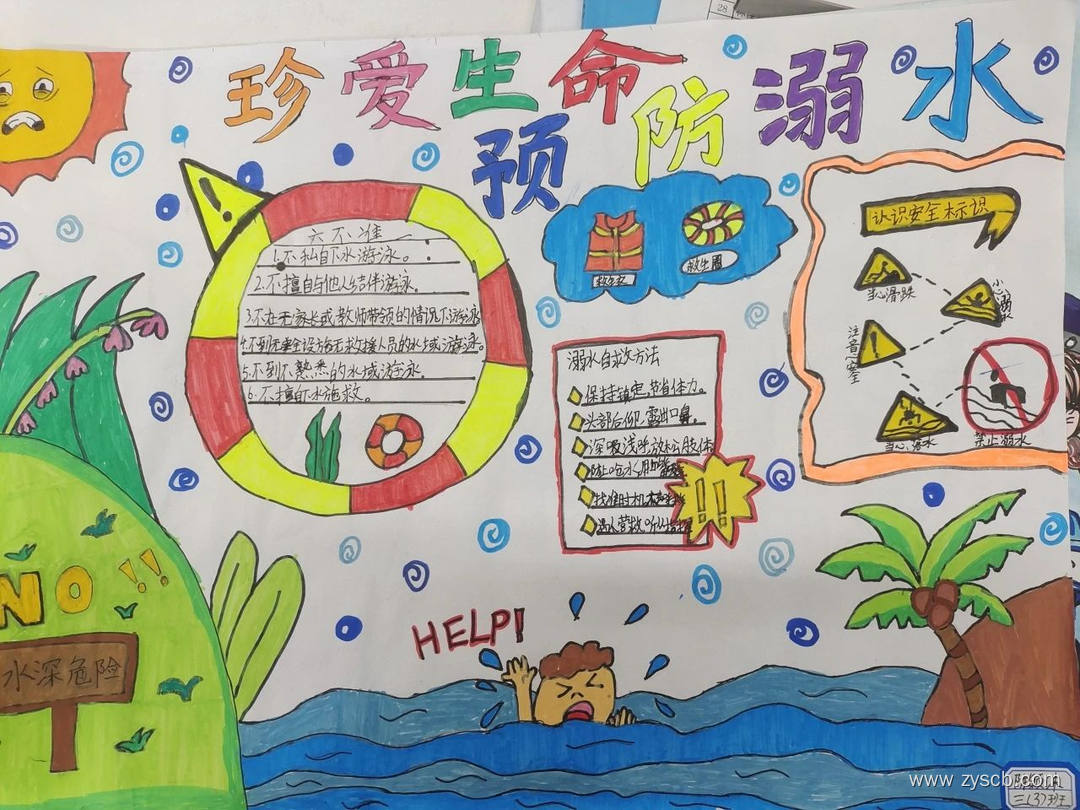 珍爱生命
预防溺水
六不准
1.不私自下水游泳。
2.不擅自与他人结伴游泳。
3.不在无家长或教师带领的情况下游泳
4.不到无安全设施无救援人员的水域游泳。
5.不到不熟悉的水域游泳。
6.不擅自下水施救。
救生衣
救生圈
溺水自救方法
保持镇定,节省体力。
头部后仰,露出口鼻。
深吸浅呼,放松肢体
防止呛水,用
找准时机
遇人营救,听从指挥
!!
认识安全标识
当心滑跌
小心溺水
注意安全
当心落水
禁止溺水
NO!!
水深危险
HELP!
28
三(3)班
www.zyscb.com